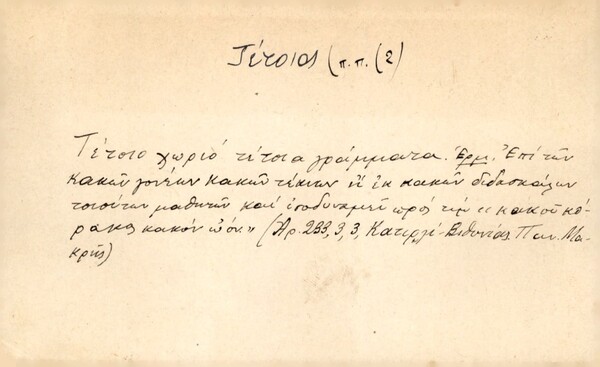 Τέτοιος (π.π. (2)
Τέτοιο χωριό τέτοια γράμματα. Ἑρμ. Ἐπί τῶν
κακῶν γονέων κακῶν τέκνων ἤ ἐκ κακῶν διδασκάλων
τοιούτων μαθητῶν καί ἰσοδυναμεῖ πρός τήν "κακοῦ κό-
ρακος κακόν ὠόν." (Ἀρ. 233, 3, 3, Κατιρλί-Βιθυνίας Παν. Μα-
κρῆς)